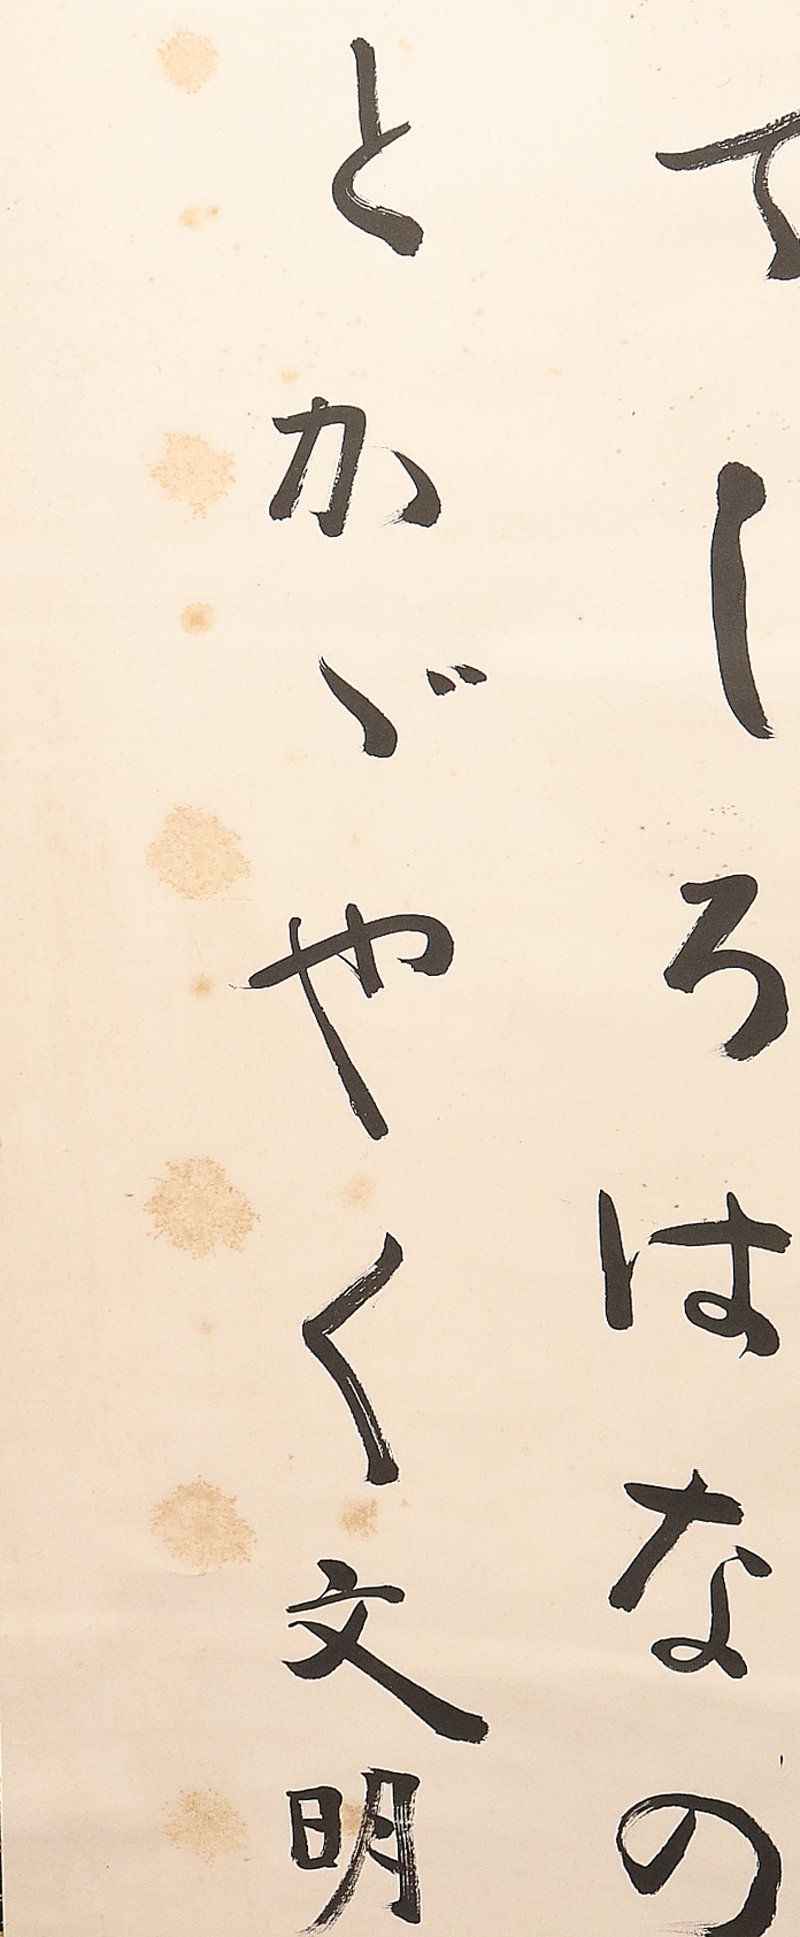 てしろはなの
とかゞやく文明